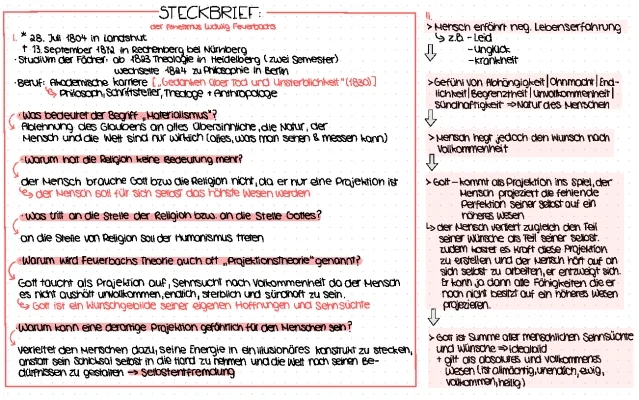 STECKBRIEF:
der Atheismus Ludwig Feuerbachs
I. * 28. Juli 1804 in Landshut
† 13. September 1872 in Rechenberg bei Nürnberg
· Studium der Fächer: ab 1823 Theologie in Heidelberg (zwei Semester)
wechselte 1824 zu Philosophie in Berlin
· Beruf: Akademische Karriere [„Gedanken über Tod und Unsterblichkeit" (1830)]
↳ Philosoph, Schriftsteller, Theologe + Anthropologe
· Was bedeutet der Begriff „Materialismus"?
Ablehnung des Glaubens an alles Übersinnliche, die Natur, der
Mensch und die Welt sind nur wirklich (alles, was man sehen & messen kann)
· Warum hat die Religion keine Bedeutung mehr?
der Mensch brauche Gott bzw. die Religion nicht, da er nur eine Projektion ist
↳ der Mensch soll für sich selbst das höhste Wesen werden
· Was tritt an die Stelle der Religion bzw. an die Stelle Gottes?
an die Stelle von Religion soll der Humanismus treten
· Warum wird Feuerbachs Theorie auch oft „Projektionstheorie" genannt?
Gott taucht als Projektion auf, Sehnsucht nach Vollkommenheit da der Mensch
es nicht aushält unvollkommen, endlich, sterblich und sündhaft zu sein.
↳ Gott ist ein Wunschgebilde seiner eigenen Hoffnungen und Sehnsüchte
· Warum kann eine derartige Projektion gefährlich für den Menschen sein?
verleitet den Menschen dazu, seine Energie in ein illusionäres Konstrukt zu stecken,
anstatt sein Schicksal selbst in die Hand zu nehmen und die Welt nach seinen Be-
dürfnissen zu gestalten → Selbstentfremdung
II.
> Mensch erfährt neg. Lebenserfahrung
↳ z.B. - Leid
- Unglück
- Krankheit
> Gefühl von Abhängigkeit | Ohnmacht | End-
lichkeit | Begrenztheit | Unvollkommenheit |
Sündhaftigkeit ⇒ Natur des Menschen
> Mensch hegt jedoch den Wunsch nach
Vollkommenheit
> Gott - kommt als Projektion ins Spiel, der
Mensch projeziert die fehlende
Perfektion seiner selbst auf ein
höheres Wesen
↳ der Mensch verliert zugleich den Teil
seiner Wünsche als Teil seiner selbst.
zudem kostet es Kraft diese Projektion
zu erstellen und der Mensch hört auf an
sich selbst zu arbeiten, er entzweigt sich.
Er kann ja dann alle Fähigkeiten die er
noch nicht besitzt auf ein höheres Wesen
projezieren.
> Gott ist Summe aller menschlichen Sehnsüchte
und Wünsche ⇒ Idealbild
+ gilt als absolutes und vollkommenes
Wesen (ist allmächtig, unendlich, ewig,
vollkommen, heilig)